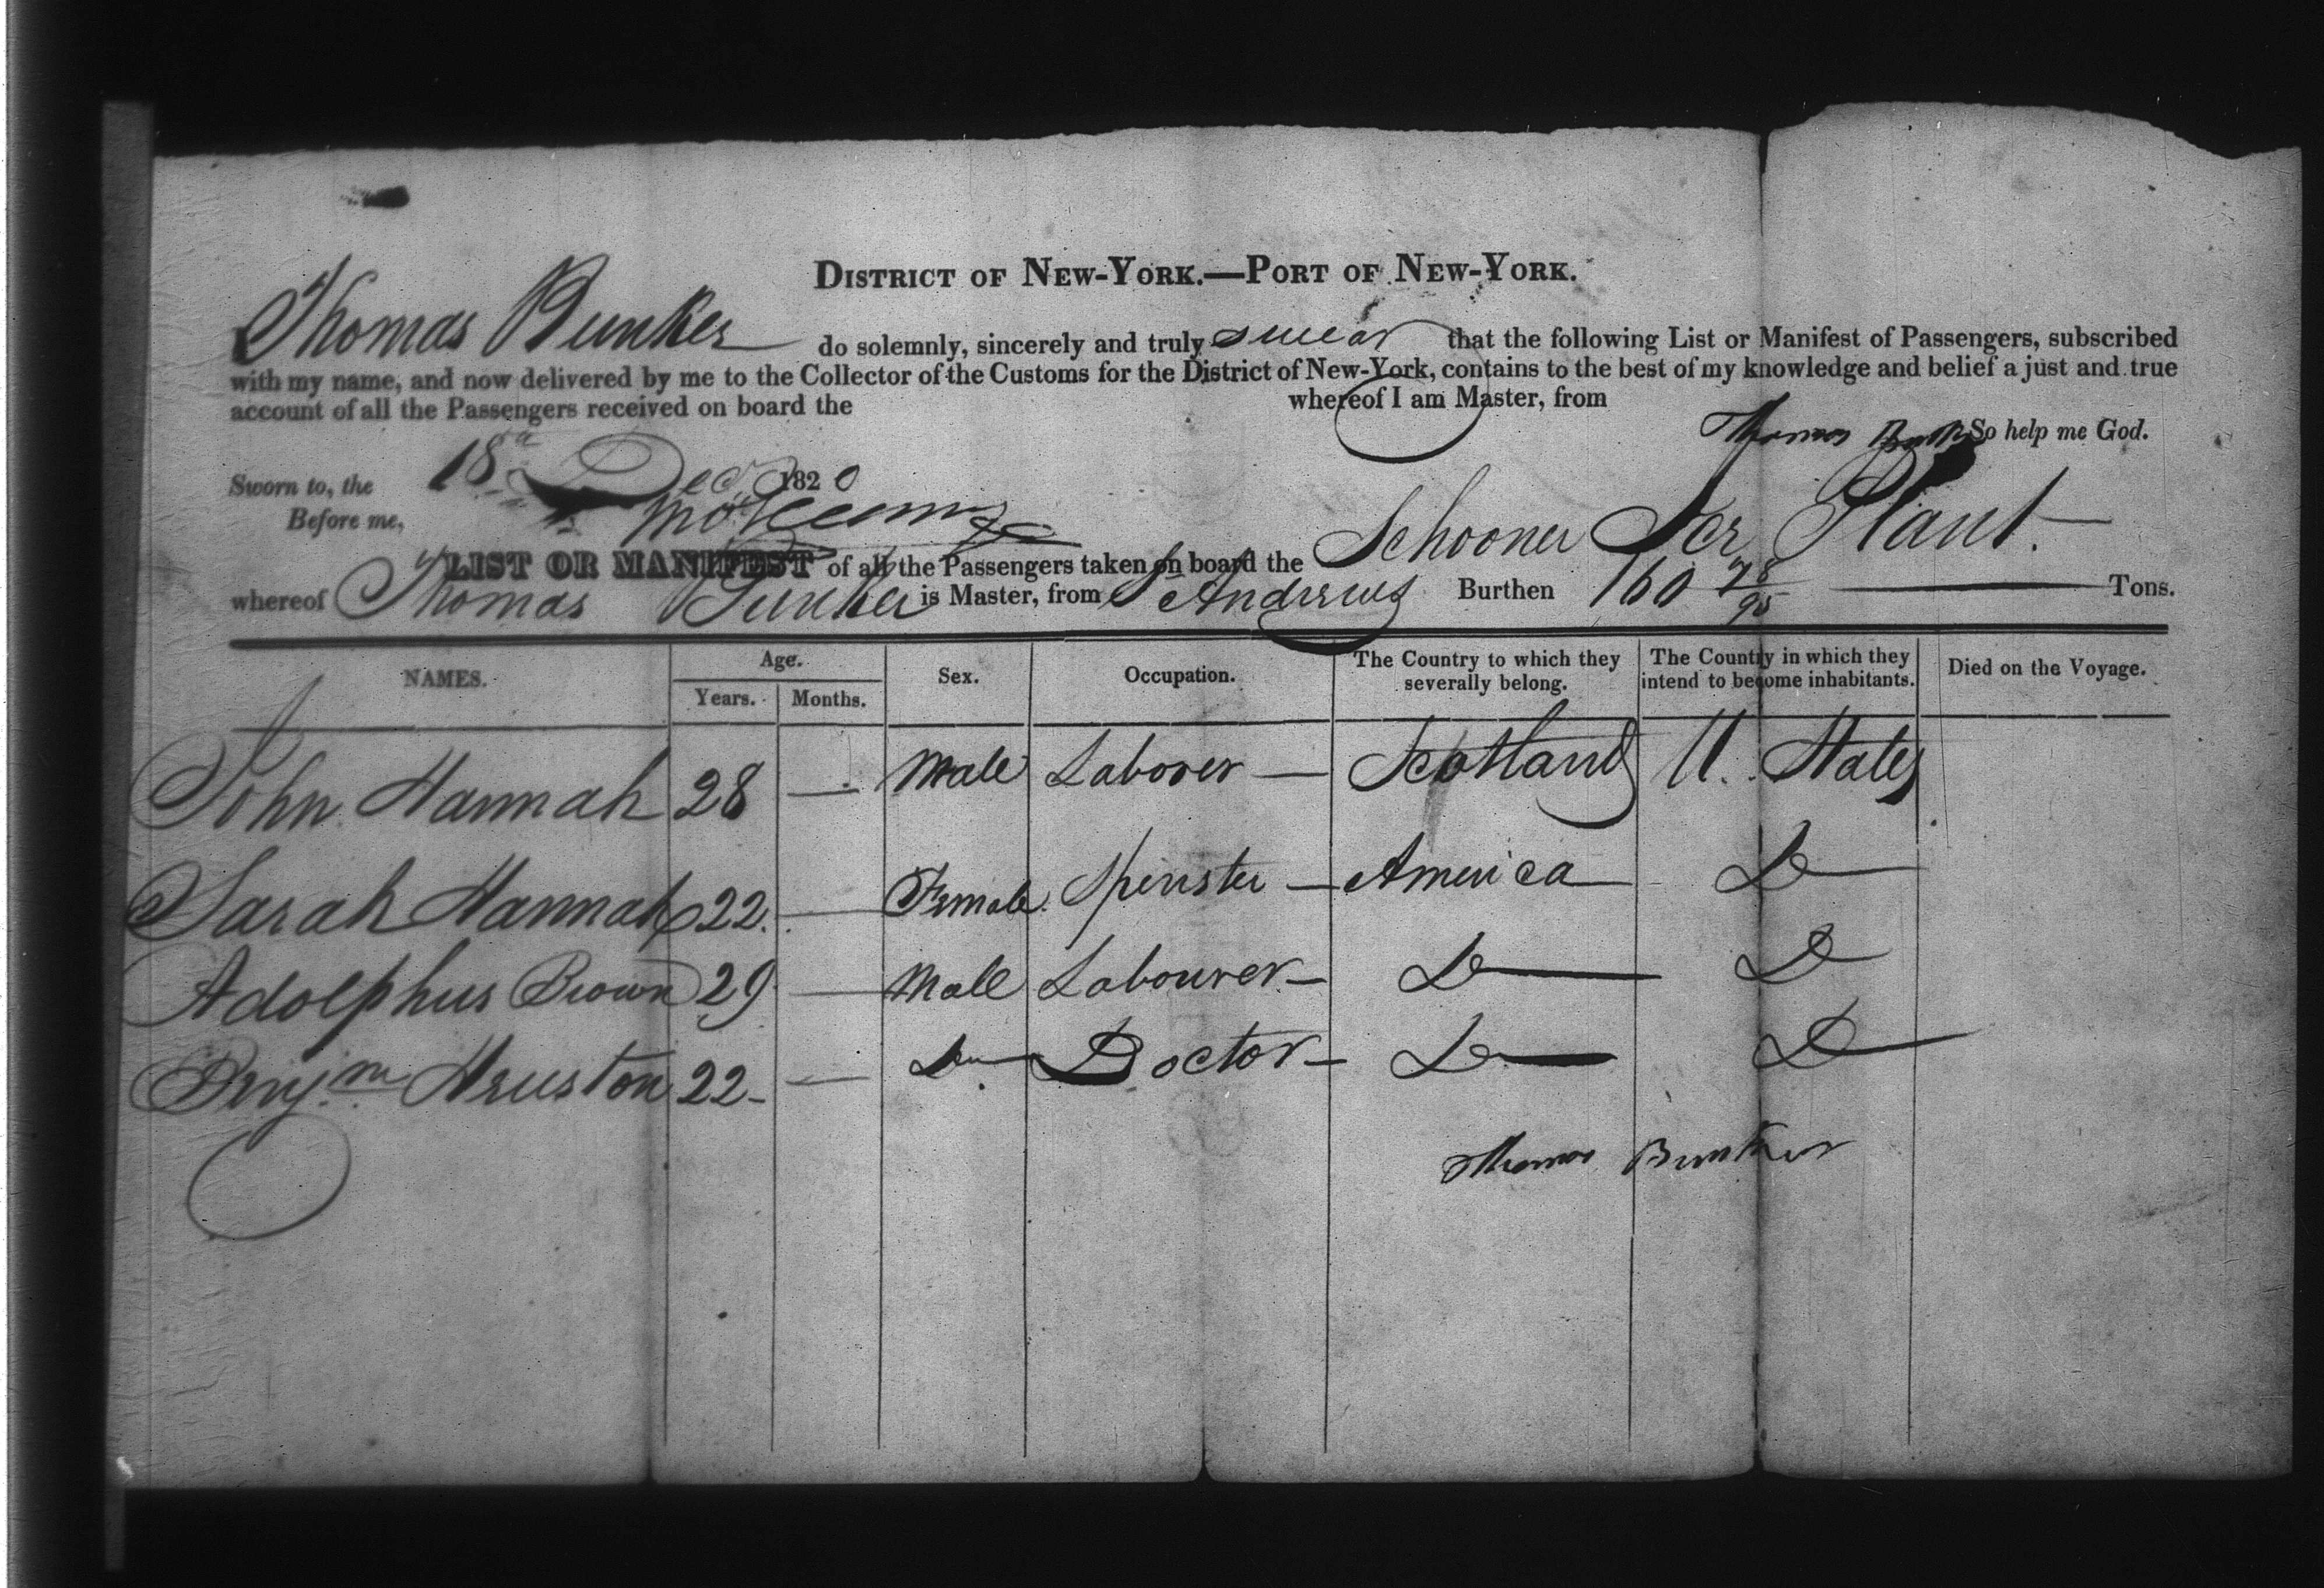 DISTRICT OF NEW-YORK.—PORT OF NEW-YORK.
Thomas Bunker do solemnly, sincerely and truly swear that the following List or Manifest of Passengers, subscribed
with my name, and now delivered by me to the Collector of the Customs for the District of New-York, contains to the best of my knowledge and belief a just and true
account of all the Passengers received on board the whereof I am Master, from
Thomas Bunker So help me God.
Sworn to, the 18 Dec. 1820
Before me,
LIST OR MANIFEST of all the Passengers taken on board the Schooner Plant.
whereof Thomas Bunker is Master, from St Andrews Burthen 160 78/95 Tons.
NAMES. Age. Years. Months. Sex. Occupation. The Country to which they severally belong. The Country in which they intend to become inhabitants. Died on the Voyage.
John Hannah 28 — Male Laborer — Scotland U. States
Sarah Hannah 22. — Female. Spinster — America Do
Adolphus Brown 29 — Male Labourer — Do Do
Benjm Heuston 22 — Do Doctor — Do Do
Thomas Bunker